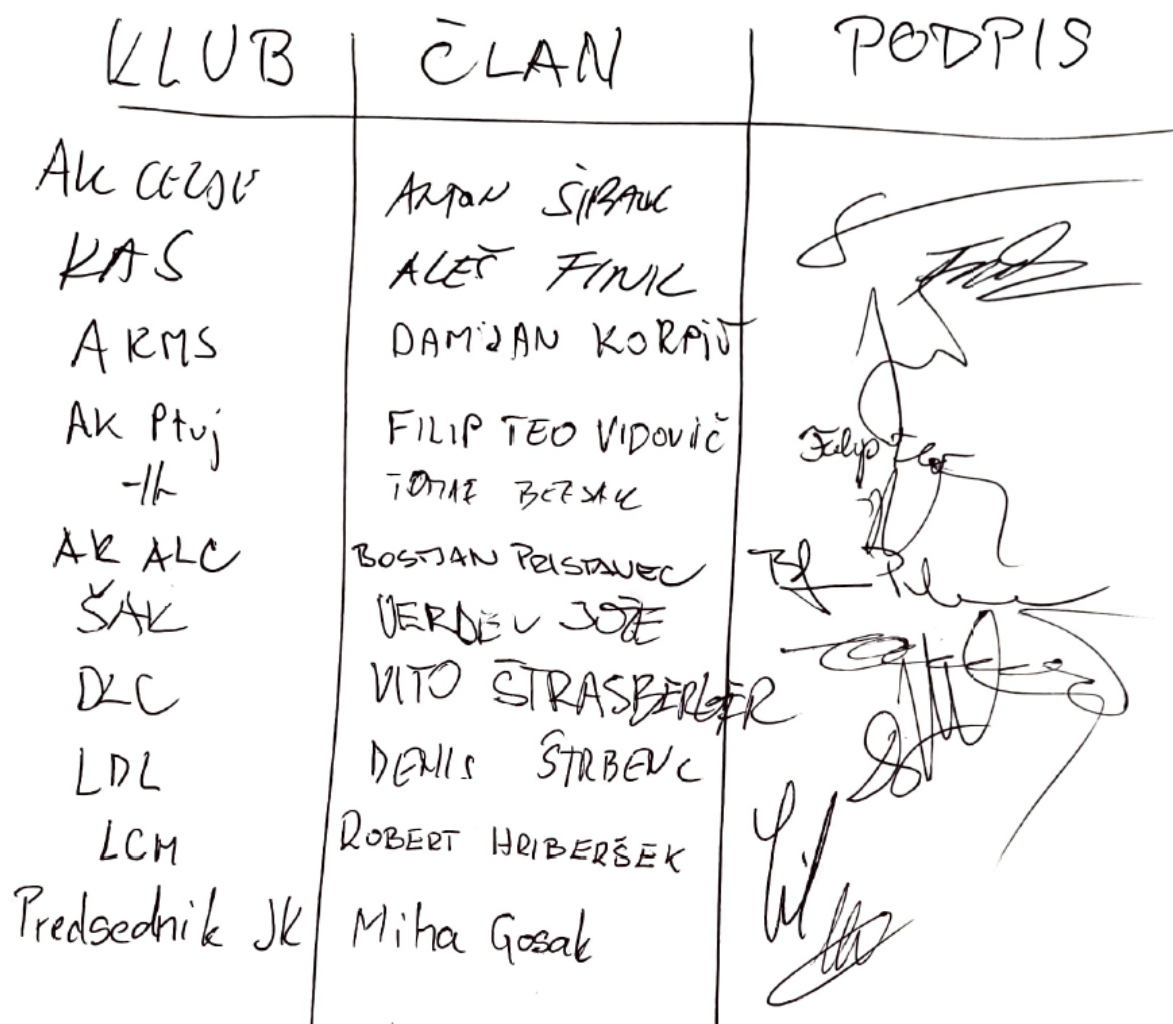 KLUB ČLAN PODPIS
AK CELJE ANTON ŠIBANC
KAS ALEŠ FINK
AKMS DAMIJAN KORPIČ
AK Ptuj FILIP TEO VIDOVIČ Filip Teo
-||- TOMAŽ BEZJAK
AK ALC BOSTJAN PRISTAVEC
ŠAK VERDEV JOŽE
DLC VITO ŠTRASBERGER
LDL DENIS ŠTRBENC
LCM ROBERT HRIBERŠEK
Predsednik JK Miha Gosak